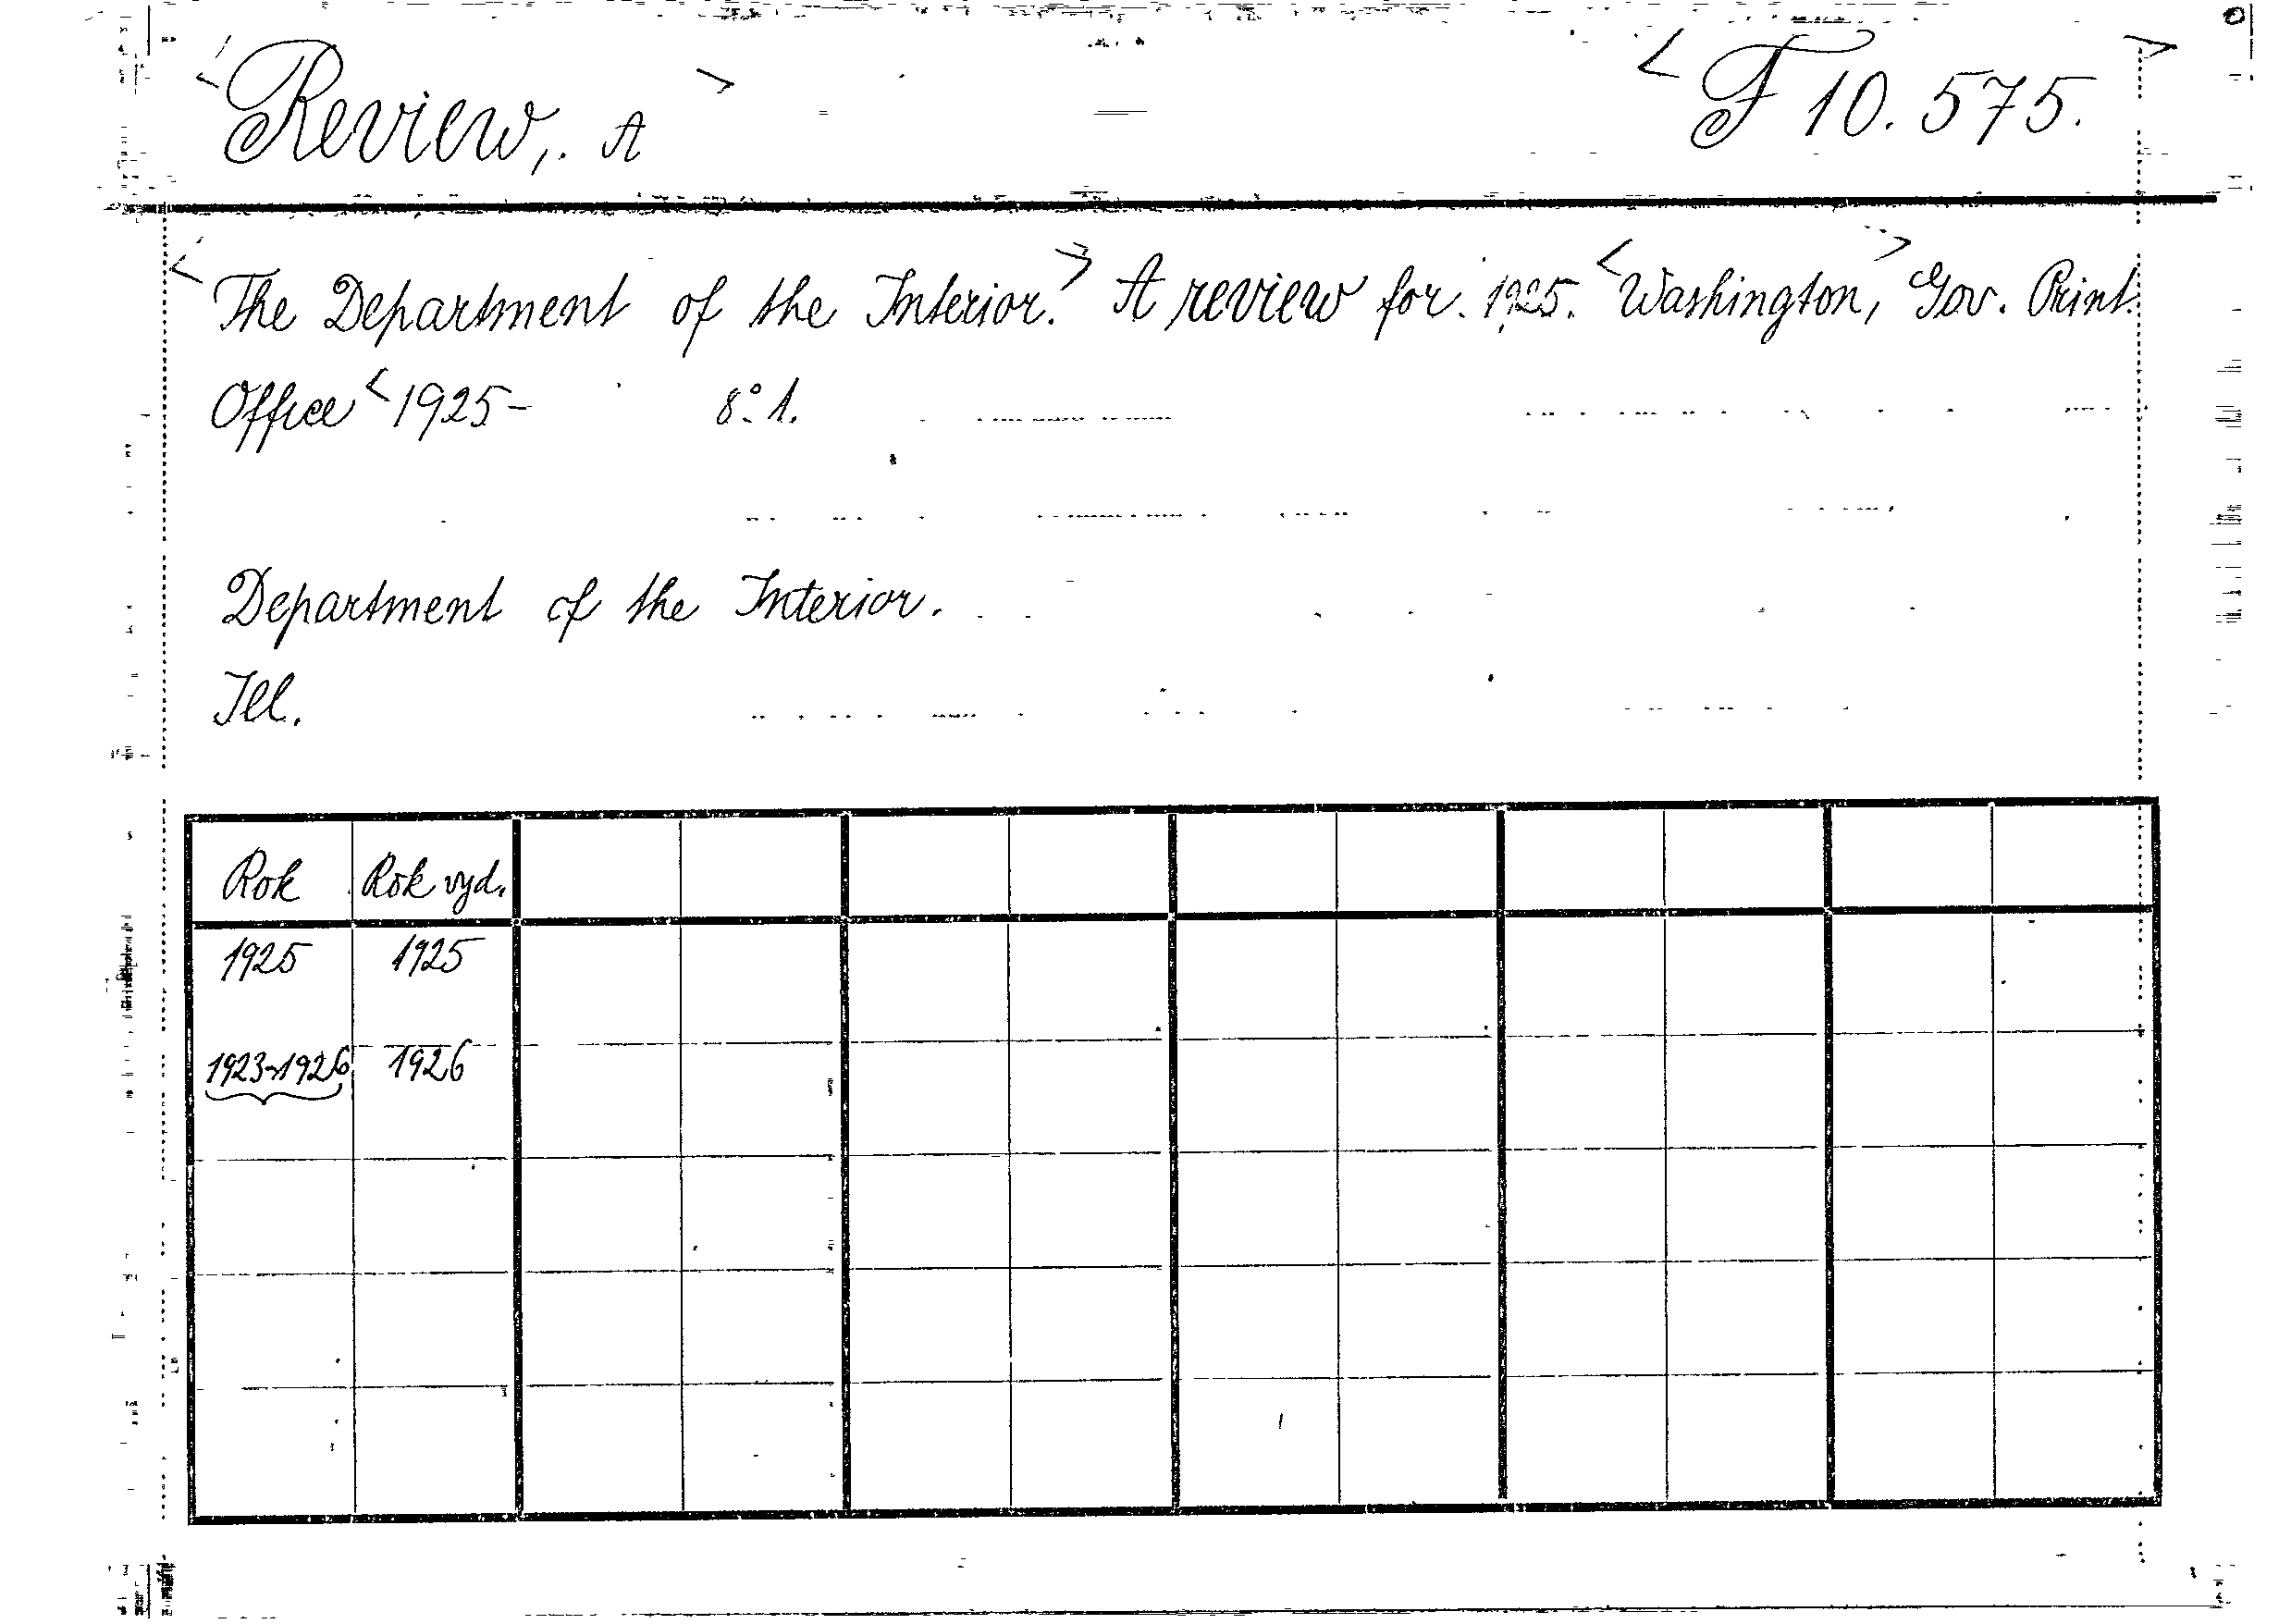 <Review,. A> <F 10.575.>
<The Department of the Interior.> A review for 1925. <Washington,> Gov. Print.
Office <1925- 8° 1.
Department of the Interior.
Ill.
Rok Rok vyd.
1925 1925
1923-1926 1926